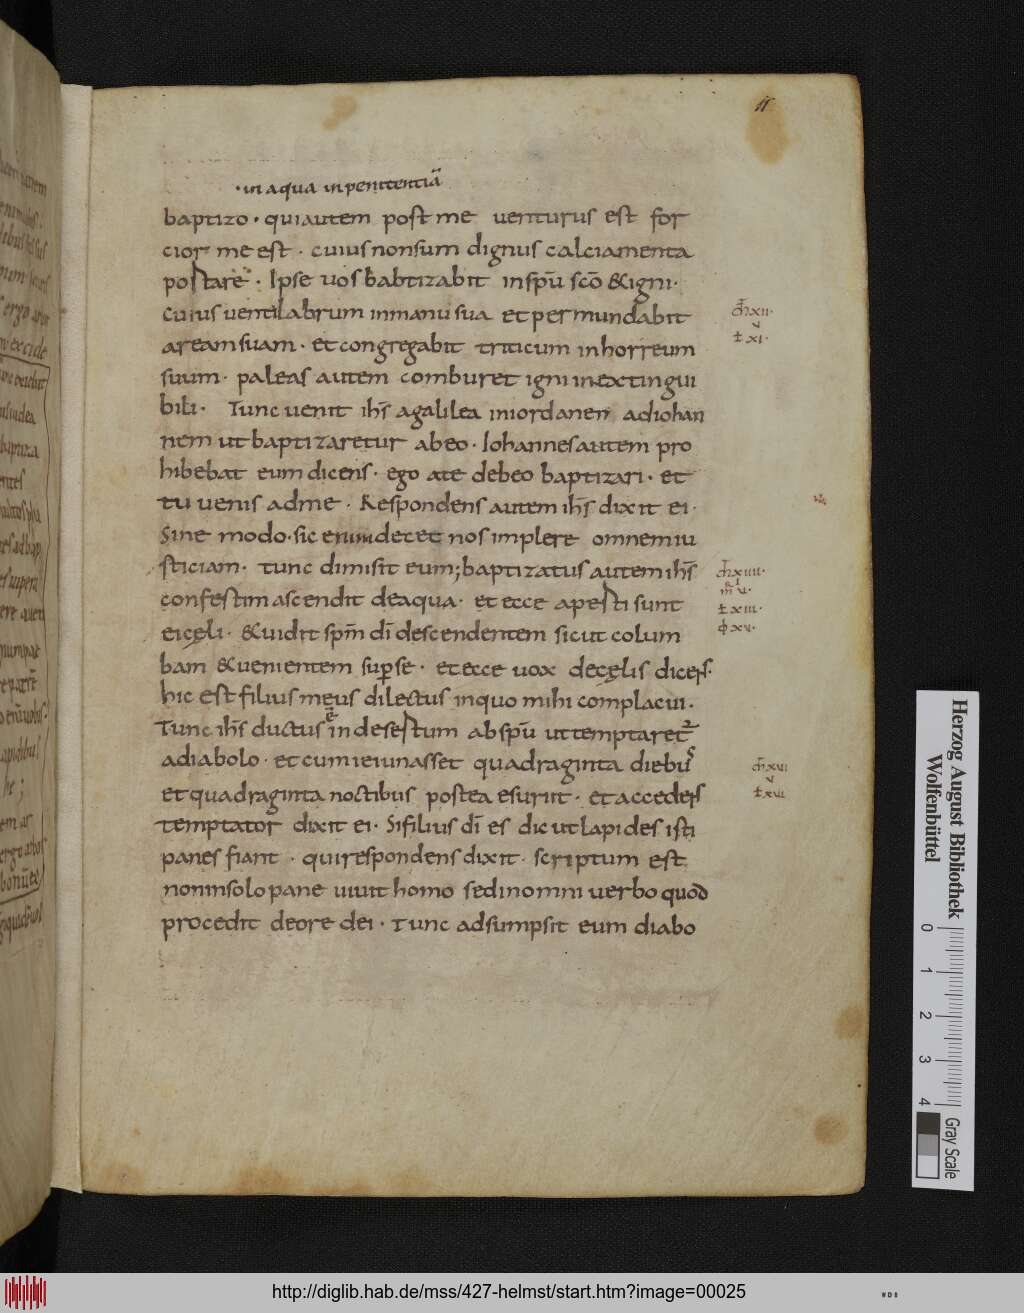 11
· in aqua in penitentiā
baptizo · qui autem post me venturus est for
cior me est · cuius non sum dignus calciamenta
portare · Ipse vos babtizabit in spū scō & igni ·
cuius ventilabrum in manu sua et per mundabit
aream suam · et congregabit triticum in horreum
suum · paleas autem comburet igni inextingui
bili · Tunc venit ihs̄ a galilea in iordanen ad iohan
nem ut baptizaretur ab eo · Iohannes autem pro
hibebat eum dicens · ego a te debeo baptizari · et
tu venis ad me · Respondens autem ihs̄ dixit ei ·
Sine modo · sic enim decet nos implere omnem iu
sticiam · tunc dimisit eum; baptizatus autem ihs̄
confestim ascendit de aqua · et ecce aperti sunt
ei cęli · & vidit spm̄ dī descendentem sicut colum
bam & venientem super se · et ecce vox de cęlis dicens ·
hic est filius meus dilectus in quo mihi complacui ·
Tunc ihs̄ ductus ē in desertum ab spū ut temptaretur
a diabolo · et cum ieiunasset quadraginta diebus
et quadraginta noctibus postea esuriit · et accedens
temptator dixit ei · Si filius dī es dic ut lapides isti
panes fiant · qui respondens dixit · scriptum est
non in solo pane vivit homo sed in omni verbo quod
procedit de ore dei · Tunc adsumpsit eum diabo
Herzog August Bibliothek
Wolfenbüttel
0 1 2 3 4
Gray Scale
http://diglib.hab.de/mss/427-helmst/start.htm?image=00025